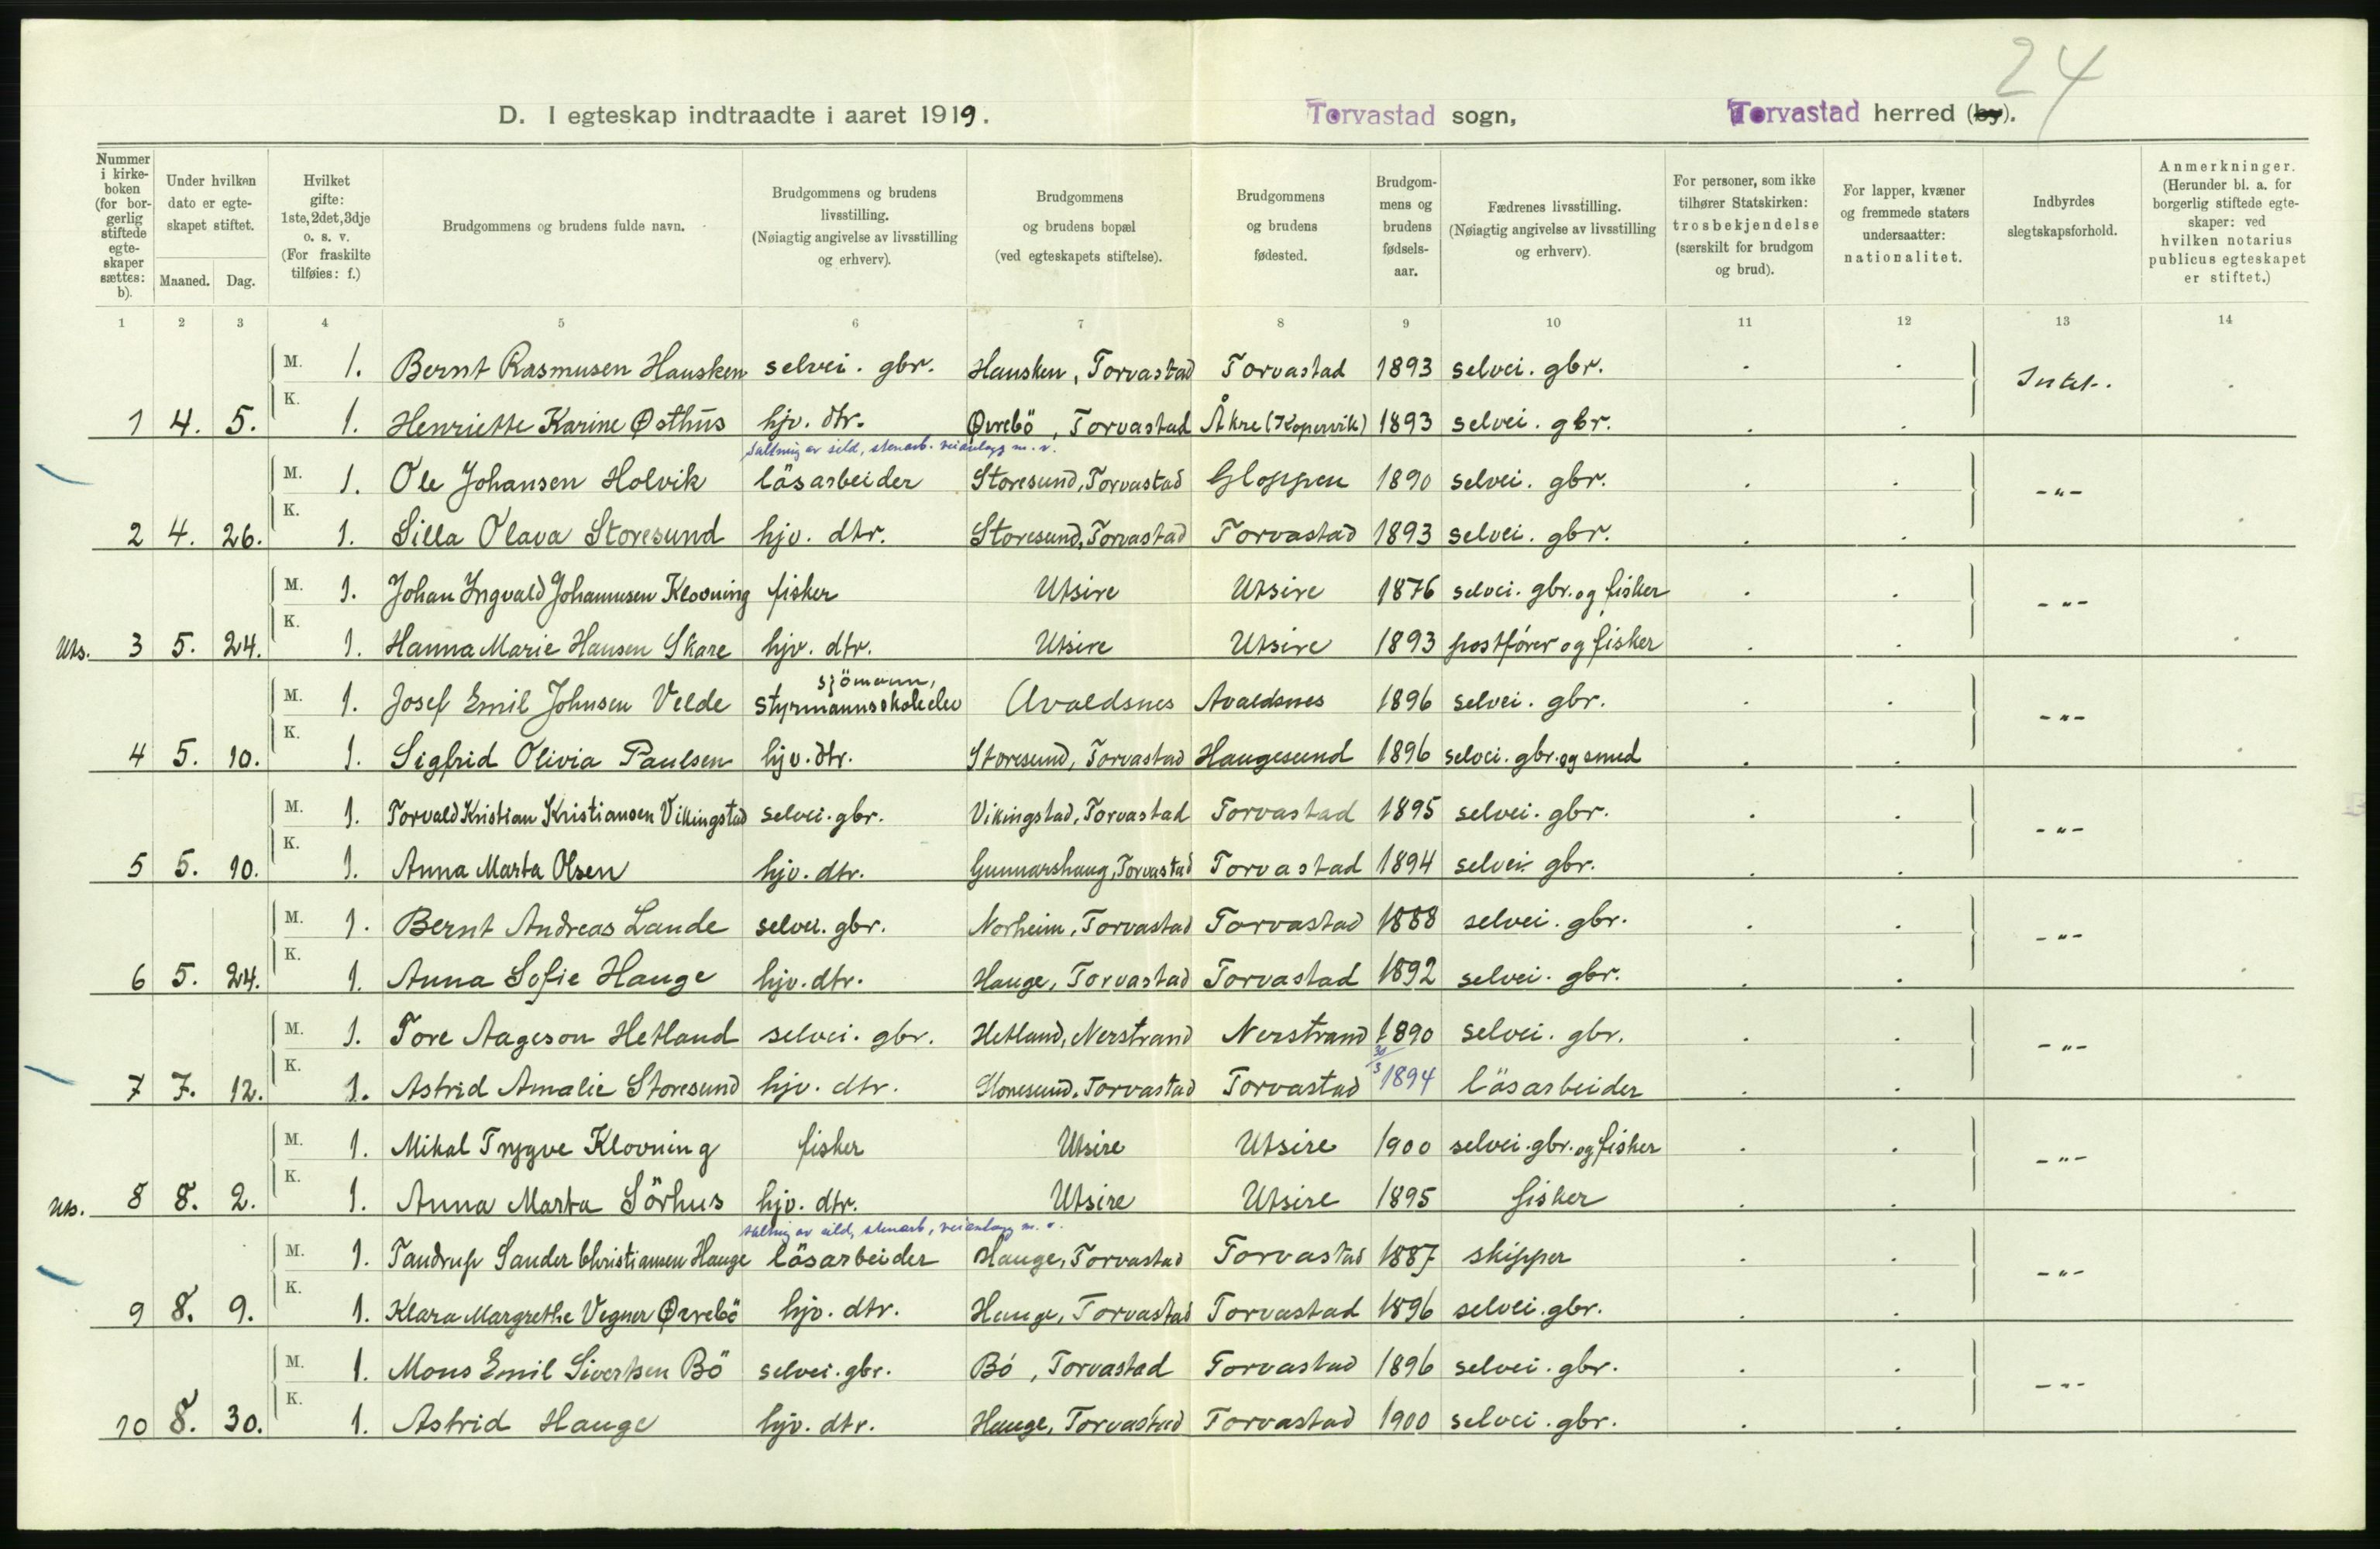 24
D. I egteskap indtraadte i aaret 1919. Torvastad sogn, Torvastad herred (by).
Nummer i kirkeboken (for borgerlig stiftede egteskaper sættes: b).
Under hvilken dato er egteskapet stiftet.
Maaned. Dag.
Hvilket gifte: 1ste, 2det, 3dje o. s. v. (For fraskilte tilføies: f.)
Brudgommens og brudens fulde navn.
Brudgommens og brudens livsstilling. (Nøiagtig angivelse av livsstilling og erhverv).
Brudgommens og brudens bopæl (ved egteskapets stiftelse).
Brudgommens og brudens fødested.
Brudgommens og brudens fødselsaar.
Fædrenes livsstilling. (Nøiagtig angivelse av livsstilling og erhverv).
For personer, som ikke tilhører Statskirken: trosbekjendelse (særskilt for brudgom og brud).
For lapper, kvæner og fremmede staters undersaatter: nationalitet.
Indbyrdes slegtskapsforhold.
Anmerkninger. (Herunder bl. a. for borgerlig stiftede egteskaper: ved hvilken notarius publicus egteskapet er stiftet.)
1 2 3 4 5 6 7 8 9 10 11 12 13 14
M. 1. Bernt Rasmusen Hausken selvei. gbr. Hausken, Torvastad Torvastad 1893 selvei. gbr. . . Intet. .
1 4. 5. K. 1. Henriette Karine Østhus hjv. dtr. Øvrebö, Torvastad Åkre (Kopervik) 1893 selvei. gbr. . .
Saltning av sild, stenarb. veianlegg m. v.
M. 1. Ole Johansen Holvik läsarbeider Storesund, Torvastad Gloppen 1890 selvei. gbr. . . -"-
2 4. 26. K. 1. Silla Olava Storesund hjv. dtr. Storesund, Torvastad Torvastad 1893 selvei. gbr. . .
M. 1. Johan Ingvald Johannesen Klovning fisker Utsire Utsire 1876 selvei. gbr. og fisker . . -"-
Uts. 3 5. 24. K. 1. Hanna Marie Hansen Skare hjv. dtr. Utsire Utsire 1893 postförer og fisker . . .
sjömann,
M. 1. Josef Emil Johnsen Velde styrmannsskoleelev Avaldsnes Avaldsnes 1896 selvei. gbr. . . -"-
4 5. 10. K. 1. Sigfrid Olivia Paulsen hjv. dtr. Storesund, Torvastad Haugesund 1896 selvei. gbr. og smed . . .
M. 1. Torvald Kristian Kristiansen Vikingstad selvei. gbr. Vikingstad, Torvastad Torvastad 1895 selvei. gbr. . . -"-
5 5. 10. K. 1. Anna Marta Olsen hjv. dtr. Gunnarshaug, Torvastad Torvastad 1894 selvei gbr. . . .
M. 1. Bernt Andreas Lande selvei. gbr. Norheim, Torvastad Torvastad 1888 selvei. gbr. . . -"-
6 5. 24. K. 1. Anna Sofie Hauge hjv. dtr. Hauge, Torvastad Torvastad 1892 selvei. gbr. . . .
M. 1. Tore Aageson Hetland selvei. gbr. Hetland, Nerstrand Nerstrand 1890 selvei. gbr. . . -"-
7 7. 12. K. 1. Astrid Amalie Storesund hjv. dtr. Storesund, Torvastad Torvastad 30/3 1894 läsarbeider . . .
M. 1. Mikal Trygve Klovning fisker Utsire Utsire 1900 selvei. gbr. og fisker . . -"-
Uts. 8 8. 2. K. 1. Anna Marta Sörhus hjv. dtr. Utsire Utsire 1895 fisker . . .
Saltning av sild, stenarb, veianlegg m. v.
M. 1. Tandrup Sander Christiansen Hauge läsarbeider Hauge, Torvastad Torvastad 1887 skipper . . -"-
9 8. 9. K. 1. Klara Margrethe Vegner Øvrebö hjv. dtr. Hauge, Torvastad Torvastad 1896 selvei. gbr. . . .
M. 1. Mons Emil Sivertsen Bö selvei. gbr. Bö, Torvastad Torvastad 1896 selvei. gbr. . . -"-
10 8. 30. K. 1. Astrid Hauge hjv. dtr. Hauge, Torvastad Torvastad 1900 selvei. gbr. . . .